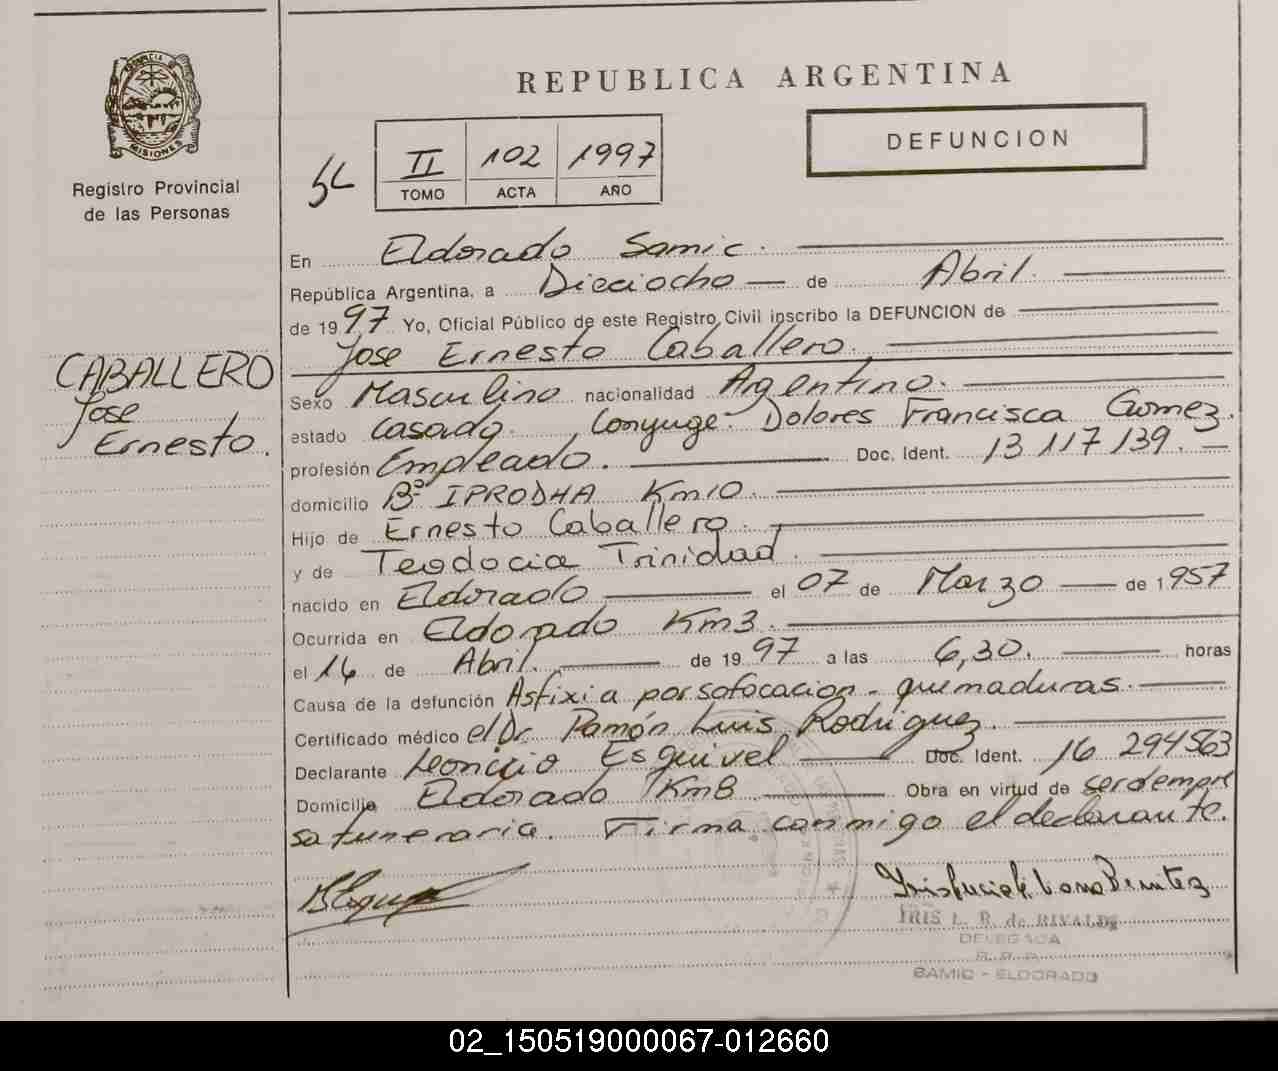 PROVINCIA DE
MISIONES
Registro Provincial
de las Personas
REPUBLICA ARGENTINA
DEFUNCION
II 102 1997
TOMO ACTA AÑO
CABALLERO
Jose
Ernesto.
En Eldorado Samic.
República Argentina, a Dieciocho de Abril.
de 1997 Yo, Oficial Público de este Registro Civil inscribo la DEFUNCION de
Jose Ernesto Caballero.
Sexo Masculino nacionalidad Argentino.
estado casado. Conyuge: Dolores Francisca Gomez.
profesión Empleado. Doc. Ident. 13 117 139.
domicilio Bº IPRODHA Km10.
Hijo de Ernesto Caballero.
y de Teodocia Trinidad.
nacido en Eldorado el 07 de Marzo de 1957
Ocurrida en Eldorado Km3.
el 16 de Abril. de 1997 a las 6,30. horas
Causa de la defunción Asfixia por sofocacion - quemaduras.
Certificado médico el Dr. Ramón Luis Rodriguez.
Declarante Leoncio Esquivel Doc. Ident. 16 294563
Domicilio Eldorado Km8 Obra en virtud de ser dempre
sa funeraria. Firma conmigo el declarante.
IRIS L. R. de RIVALDE
DELEGADA
SAMIC - ELDORADO
02_150519000067-012660